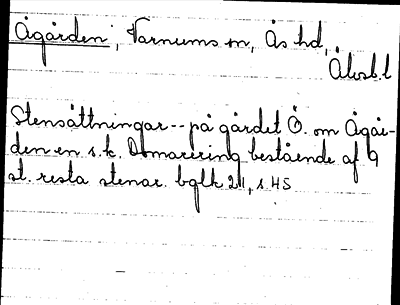 Ågården, Varnums sn, Ås hd,
Älvsb. l
Stensättningar -- på gärdet Ö. om Ågår-
den en s.k. Domarring bestående af 9
st. resta stenar. bglk 21, s. 45